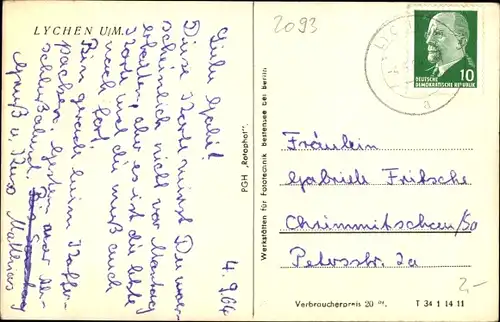 LYCHEN U/M.
2093
4.9.64
Liebe Gabi!
Diese Karte wirst Du wahr-
scheinlich nicht vor Montag
erhalten, aber es ist die letzte
Karte und die muß auch
noch fort.
Bin gerade beim Koffer-
packen. Gestern war
schlußabend.
Gruß u. Kuss Matthias
PGH „Rotophot"
Werkstätten für Fototechnik bestensee bei berlin
LYCHEN
a
DEUTSCHE
DEMOKRATISCHE REPUBLIK
10
Fräulein
Gabriele Fritsche
Crimmitschau/Sa
Petersstr. 2a
2,-
Verbraucherpreis 20
T 34 1 14 11